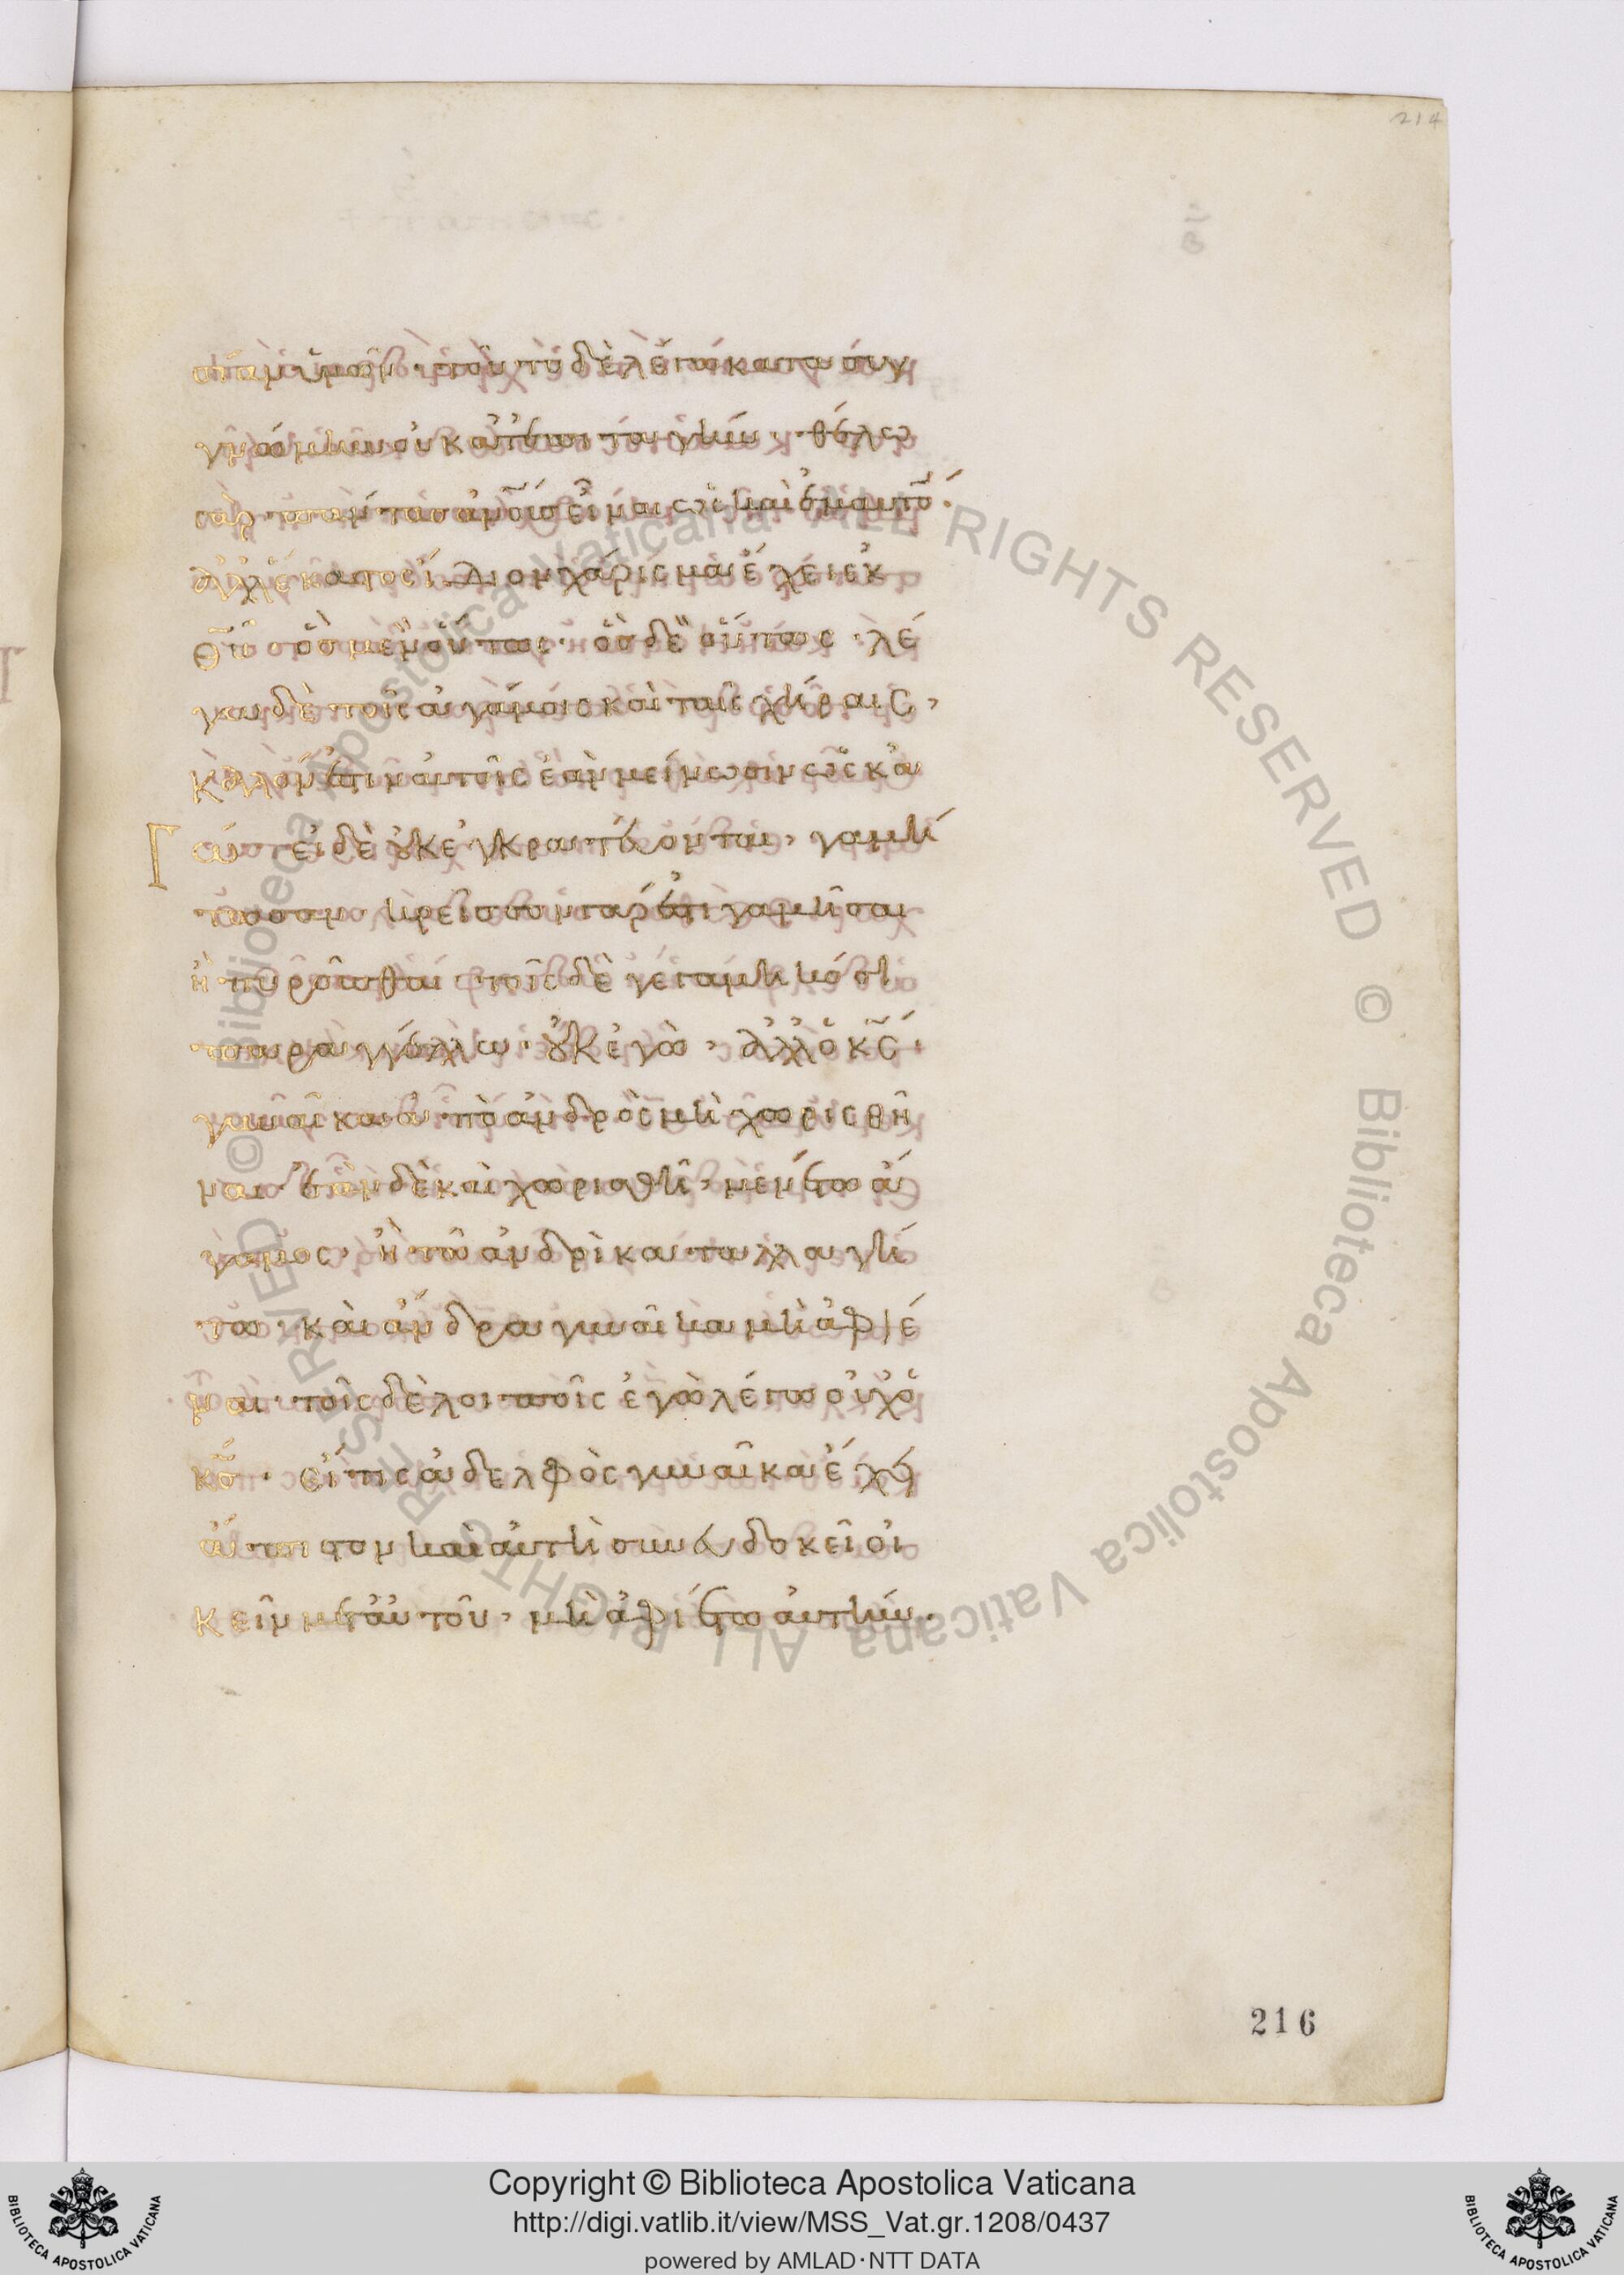 214
σίαν ὑμῶν· τοῦτο δὲ λέγω κατα συγ
γνώμην οὐ κατ' ἐπιταγήν· θέλω
γὰρ πάντας ἀν̅ο̅ι̅ς̅ εἶναι ὡς καὶ ἐμαυτὸ̅·
ἀλλ' ἕκαστος ἴδιον χάρισμα ἔχει ἐκ
θ̅υ̅ ὃς μὲν οὕτως· ὃς δὲ οὕτως· λέ
γω δὲ τοῖς ἀγάμοις καὶ ταῖς χήραις,
καλὸν ἐστιν αὐτοῖς ἐὰν μείνωσιν ὡς κἀ
γώ· εἰ δὲ οὐκ ἐγκρατεύονται, γαμη
τωσαν· κρεῖσσον γάρ ἐστι γαμῆσαι
ἢ πυροῦσθαι· τοῖς δὲ γεγαμηκόσι
παραγγέλλω· οὐκ ἐγὼ, ἀλλ' ὁ κ̅ς̅·
γυναῖκα ἀπὸ ἀνδρὸς μὴ χωρισθῆ
ναι· ἐὰν δὲ καὶ χωρισθῆ, μενέτω ἄ
γαμος· ἢ τῶ ἀνδρὶ καταλλαγή
τω· καὶ ἄνδρα γυναῖκα μὴ ἀφιέ
ναι· τοῖς δὲ λοιποῖς ἐγὼ λέγω οὐχ ὁ
κ̅ς̅· εἴ τις ἀδελφὸς γυναῖκα ἔχει
ἄπιστον καὶ αὐτὴ συνευδοκεῖ οἰ
κεῖν μετ' αὐτοῦ, μὴ ἀφιέτω αὐτήν·
216
Copyright © Biblioteca Apostolica Vaticana
http://digi.vatlib.it/view/MSS_Vat.gr.1208/0437
powered by AMLAD·NTT DATA
BIBLIOTECA APOSTOLICA VATICANA
BIBLIOTECA APOSTOLICA VATICANA
© Biblioteca Apostolica Vaticana ALL RIGHTS RESERVED © Biblioteca Apostolica Vaticana ALL RIGHTS RESERVED